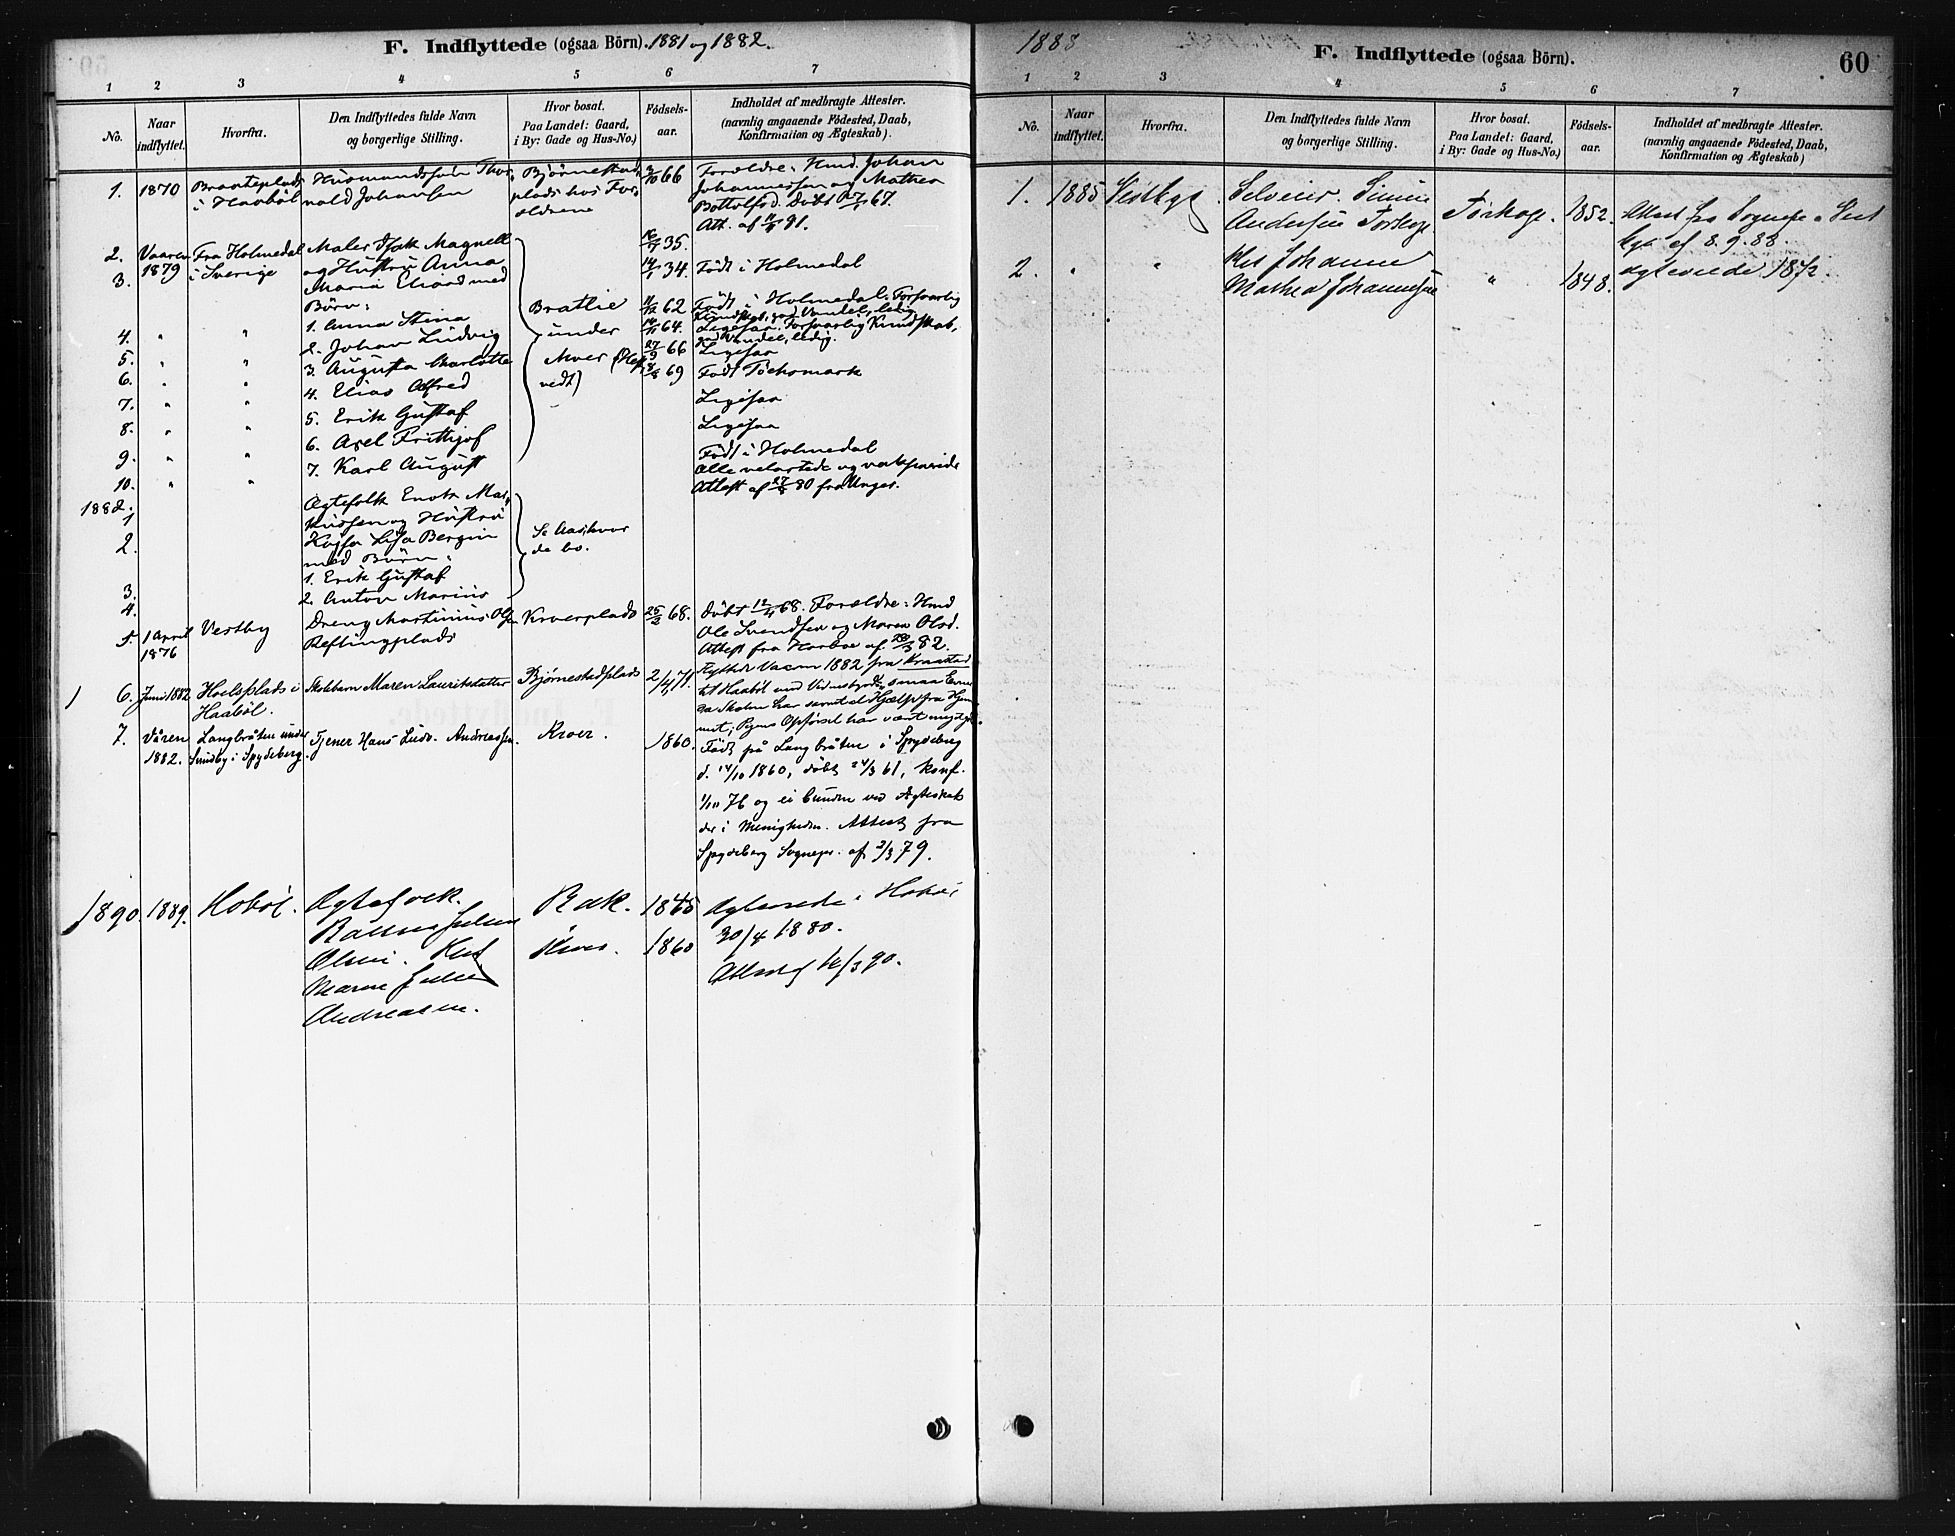 F. Indflyttede (ogsaa Börn). 1881 og 1882.
1 2 3 4 5 6 7
No.
Naar indflyttet.
Hvorfra.
Den Indflyttedes fulde Navn og borgerlige Stilling.
Hvor bosat. Paa Landet: Gaard, i By: Gade og Hus-No.)
Fødsels-aar.
Indholdet af medbragte Attester. (navnlig angaaende Fødested, Daab, Konfirmation og Ægteskab).
1. 1870 Braateplads Husmandssøn Thor- Bjørnestad- 66 Forældre: Hmd. Johan
i Haabøl vald Johansen plads hos For- Johannessen og Mathea
ældrene Bottolfsd. Døbt 67.
Att. af 81.
2. Vaaren Fra Holmedal Maler Isak Magnell 35.
3. 1879 i Sverige og Hustru Anna 34 Født i Holmedal
Maria med
Børn:
4. " " 1. Anna Stina Bratlie 62 Født i Holmedal. Forsvarlig
Kundskab, god Vandel, ledig
5. " " 2. Johan Ludvig under 64. Ligesaa. Forsvarlig Kundskab,
god Vandel, ledig.
6. " " 3. Augusta Charlotte Moer 66 Ligesaa
7. " " 4. Elias Alfred vedt) 69 Født Töcksmark
8. " " 5. Erik Gustaf Ligesaa
9. " " 6. Axel Frithjof Ligesaa
10. " " 7. Karl August Født i Holmedal
Alle velartede og
Attest af 27/8 80 fra Unger.
1882.
1 Ægtefolk Enok Mag-
nussen og Hustru
2. Kajsa Lisa Bergin Se Aas, hvor
med Børn: de bo.
3. 1. Erik Gustaf
4. 2. Anton Marius
5. 1 April 1876 Vestby Dreng Martinius Olsen Kroerplads 25/2 68. Døbt 12/4 68. Forældre: Hmd
Reftingplads Ole Svendsen og Maren Olsd.
Attest fra af 82.
6. Juni 1882 Hoelsplads i Skolebarn Maren Lauritsdatter Bjørnestadplads 2/4 71. Flyttede Vaaren 1882 fra Kraakstad
Haabøl. til Haabøl med Vidnesbyrd: smaa Evner
Skolen har savnet al Hjælp fra Hjem-
met, Pigens Opførsel har været
7. Våren Langbråten under Tjener Hans Ludv. Andreassen. Kroer. 1860. Født på Langbråten i Spydeberg
1882. Sundby i Spydeberg. d. 14/10 1860, døbt 24/3 61, konf.
1/10 76 og ei bunden ved Ægteskab
der i Menigheden. Attest fra
Spydeberg Sognepr. af 3/3 79.
1890 1889. Hobøl. Ægtefolk. Rak. 1845 Ægteviede i Hobøl
Olsen. Kroer. 1860 30/4 1880.
Maren Attest af 16/3 90.
Andreasen.
1883
F. Indflyttede (ogsaa Börn).
60
1 2 3 4 5 6 7
No.
Naar indflyttet.
Hvorfra.
Den Indflyttedes fulde Navn og borgerlige Stilling.
Hvor bosat. Paa Landet: Gaard, i By: Gade og Hus-No.)
Fødsels-aar.
Indholdet af medbragte Attester. (navnlig angaaende Fødested, Daab, Konfirmation og Ægteskab)
1. 1885 Vestby Selveier. Simen 1852. Attest fra Sognepr. i Vest
Andersen af 8.9.88.
2. " " Johanne " 1848. ægteviede 1872.
Mathea Johannesen